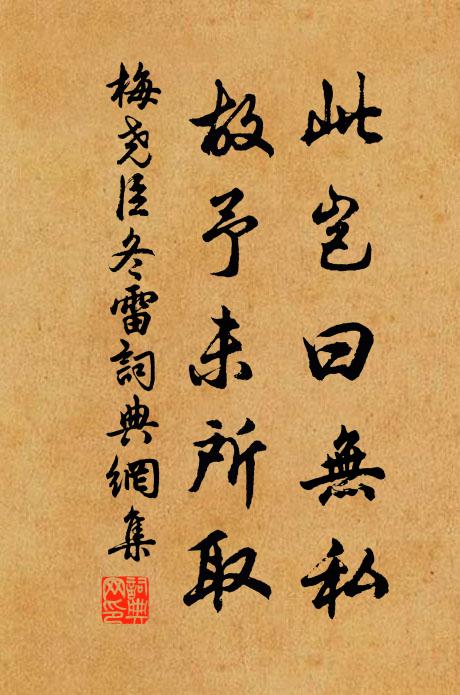 此豈曰無私
故予未所取
梅尧臣冬雷詞典網集
詞典網印